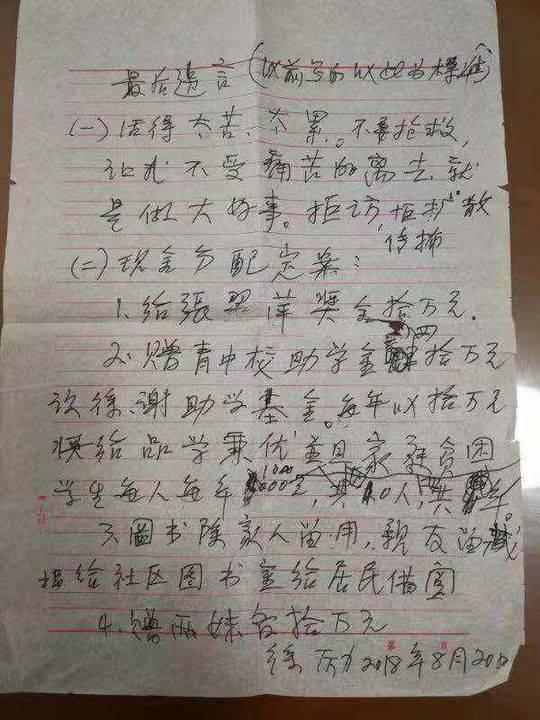 最后遗言(以前写的以此为标准)
(一)活得太苦、太累。不要抢救,
让我不受痛苦的离去,就
是做大好事。拒访,拒拍,散
传播
(二)现金分配定案:
1.给張翠萍奖金拾万元.
2.赠青中校助学金四拾万元
设徐、谢助学基金。每年以拾万元
奖给品学兼优且家庭贫困
学生每人每年1000元,共10人,共年。
3.圖书除家人留用,親友留藏
捐给社区图书室给居民借阅
4.赠两妹各拾万元
徐 2018年8月20日